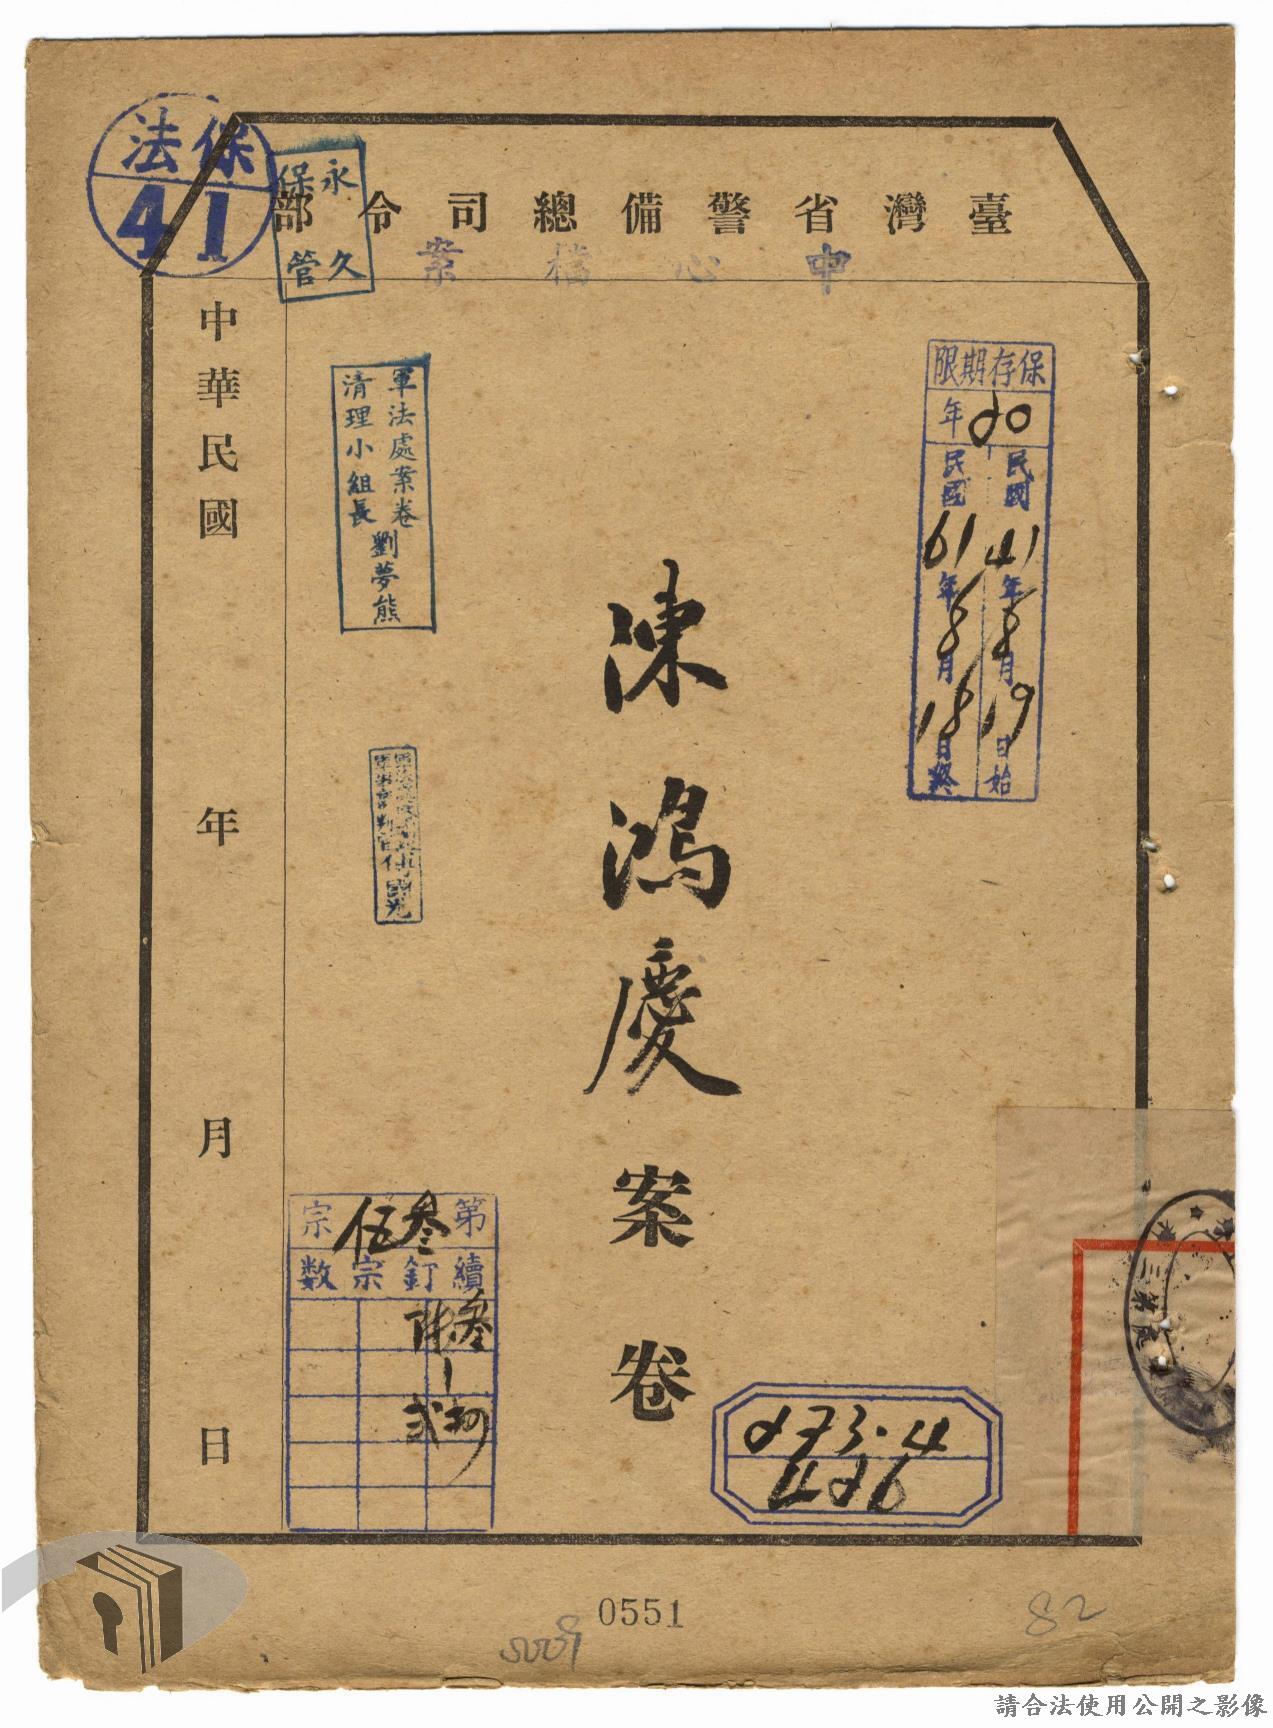 保法
41
永久保管
臺灣省警備總司令部
中心檔案
保存期限
20年
民國41年8月19日始
民國61年8月18日終
陳鴻慶案卷
軍法處案卷
清理小組長劉夢熊
傅國光
中華民國 年 月 日
第叁伍宗
續釘宗數
叁
273.4
426
第三處
0551
82
請合法使用公開之影像